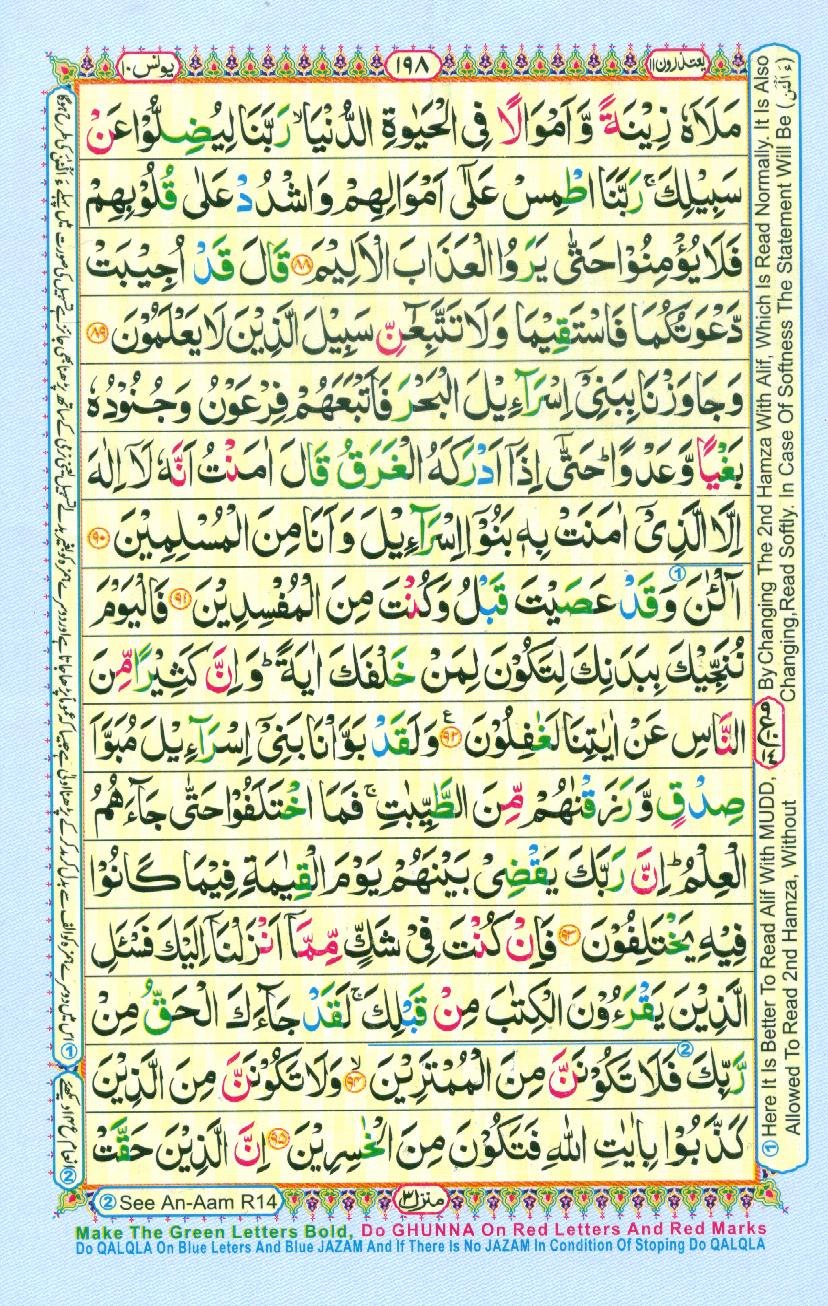 یونس ۱۰
۱۹۸
یعتذرون ۱۱
مَلَاَهٗ زِیْنَةً وَّ اَمْوَالًا فِی الْحَیٰوةِ الدُّنْیَا ۙ رَبَّنَا لِیُضِلُّوْا عَنْ
سَبِیْلِكَ ۚ رَبَّنَا اطْمِسْ عَلٰۤی اَمْوَالِهِمْ وَ اشْدُدْ عَلٰی قُلُوْبِهِمْ
فَلَا یُؤْمِنُوْا حَتّٰی یَرَوُا الْعَذَابَ الْاَلِیْمَ ۸۸ قَالَ قَدْ اُجِیْبَتْ
دَّعْوَتُكُمَا فَاسْتَقِیْمَا وَ لَا تَتَّبِعٰٓنِّ سَبِیْلَ الَّذِیْنَ لَا یَعْلَمُوْنَ ۸۹
وَ جَاوَزْنَا بِبَنِیْۤ اِسْرَآءِیْلَ الْبَحْرَ فَاَتْبَعَهُمْ فِرْعَوْنُ وَ جُنُوْدُهٗ
بَغْیًا وَّ عَدْوًا ؕ حَتّٰۤی اِذَاۤ اَدْرَكَهُ الْغَرَقُ قَالَ اٰمَنْتُ اَنَّهٗ لَاۤ اِلٰهَ
اِلَّا الَّذِیْۤ اٰمَنَتْ بِهٖ بَنُوْۤا اِسْرَآءِیْلَ وَ اَنَا مِنَ الْمُسْلِمِیْنَ ۹۰
① آٰلْـٰٔنَ وَ قَدْ عَصَیْتَ قَبْلُ وَ كُنْتَ مِنَ الْمُفْسِدِیْنَ ۹۱ فَالْیَوْمَ
نُنَجِّیْكَ بِبَدَنِكَ لِتَكُوْنَ لِمَنْ خَلْفَكَ اٰیَةً ؕ وَ اِنَّ كَثِیْرًا مِّنَ
النَّاسِ عَنْ اٰیٰتِنَا لَغٰفِلُوْنَ ۹۲ ع وَ لَقَدْ بَوَّاْنَا بَنِیْۤ اِسْرَآءِیْلَ مُبَوَّاَ
صِدْقٍ وَّ رَزَقْنٰهُمْ مِّنَ الطَّیِّبٰتِ ۚ فَمَا اخْتَلَفُوْا حَتّٰی جَآءَهُمُ
الْعِلْمُ ؕ اِنَّ رَبَّكَ یَقْضِیْ بَیْنَهُمْ یَوْمَ الْقِیٰمَةِ فِیْمَا كَانُوْا
فِیْهِ یَخْتَلِفُوْنَ ۹۳ فَاِنْ كُنْتَ فِیْ شَكٍّ مِّمَّاۤ اَنْزَلْنَاۤ اِلَیْكَ فَسْـَٔلِ
الَّذِیْنَ یَقْرَءُوْنَ الْكِتٰبَ مِنْ قَبْلِكَ ۚ لَقَدْ جَآءَكَ الْحَقُّ مِنْ
② رَّبِّكَ فَلَا تَكُوْنَنَّ مِنَ الْمُمْتَرِیْنَ ۙ ۹۴ وَ لَا تَكُوْنَنَّ مِنَ الَّذِیْنَ
كَذَّبُوْا بِاٰیٰتِ اللّٰهِ فَتَكُوْنَ مِنَ الْخٰسِرِیْنَ ۹۵ اِنَّ الَّذِیْنَ حَقَّتْ
① Here It Is Better To Read Alif With MUDD, By Changing The 2nd Hamza With Alif, Which Is Read Normally. It Is Also
Allowed To Read 2nd Hamza, Without Changing,Read Softly. In Case Of Softness The Statement Will Be (ءَ اٰلْـٰٔنَ)
② See An-Aam R14
منزل ۳
Make The Green Letters Bold, Do GHUNNA On Red Letters And Red Marks
Do QALQLA On Blue Leters And Blue JAZAM And If There Is No JAZAM In Condition Of Stoping Do QALQLA